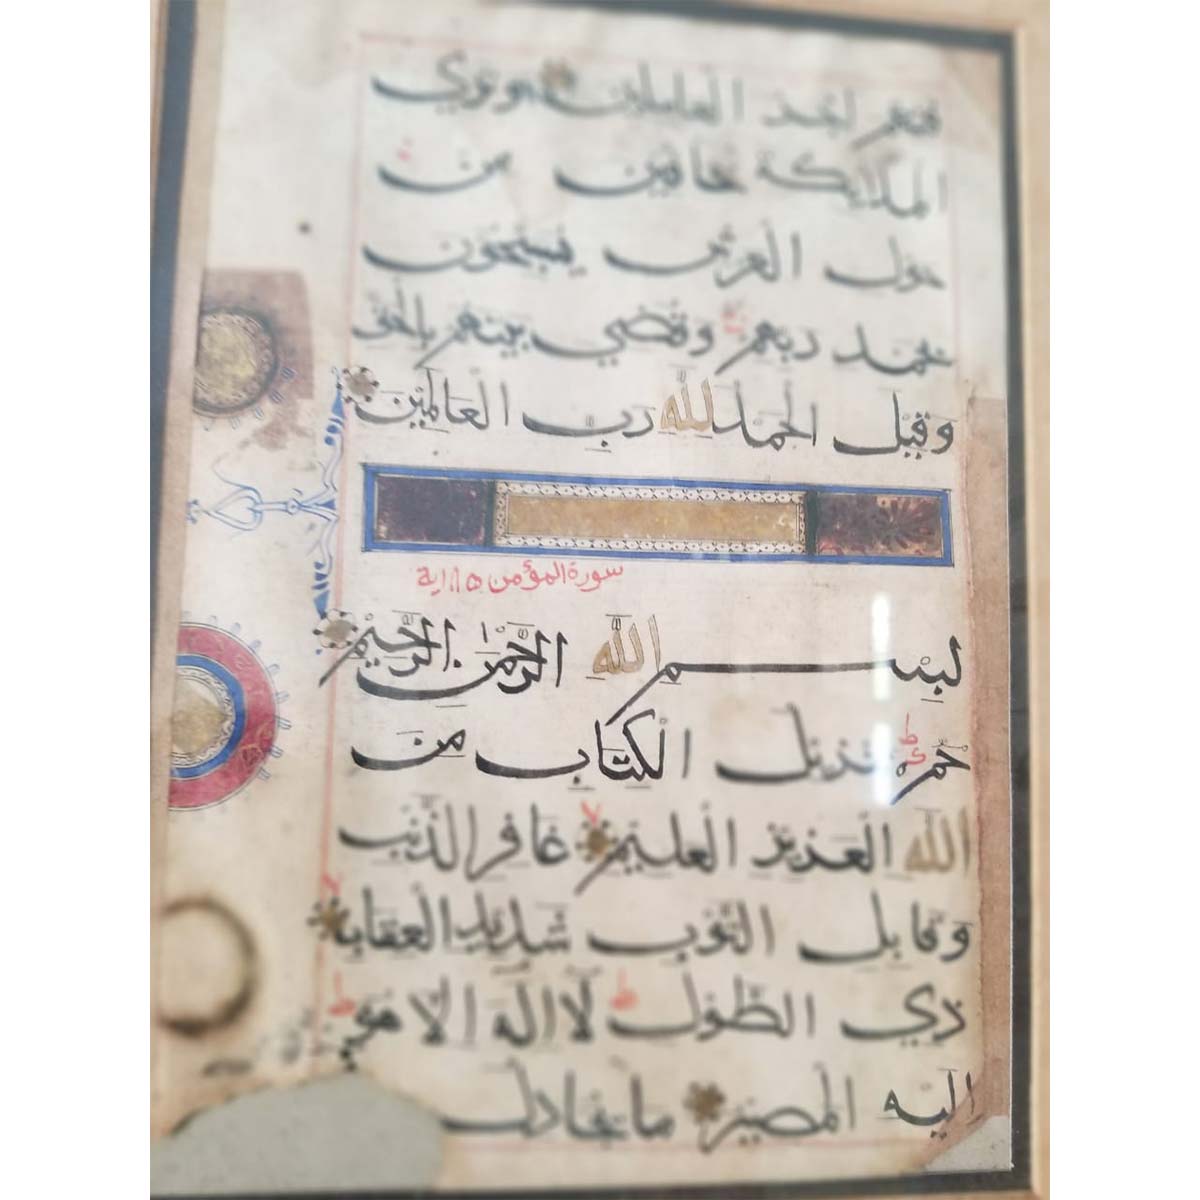 فنعم اجر العاملين وتري
الملائكة حافين من
حول العرش يسبحون
بحمد ربهم وقضي بينهم بالحق
وَقِيْلَ الْحَمْدُ لِلّٰهِ رَبِّ الْعَالَمِيْنَ
سورة المؤمن ٨٥ اية
بِسْمِ اللّٰهِ الرَّحْمٰنِ الرَّحِيْمِ
حٰم تنزيل الْكِتَابِ مِنَ
اللّٰه العزيز العليم غافر الذنب
وقابل التوب شديد العقاب
ذي الطول لا اله الا هو
اليه المصير ما يجادل